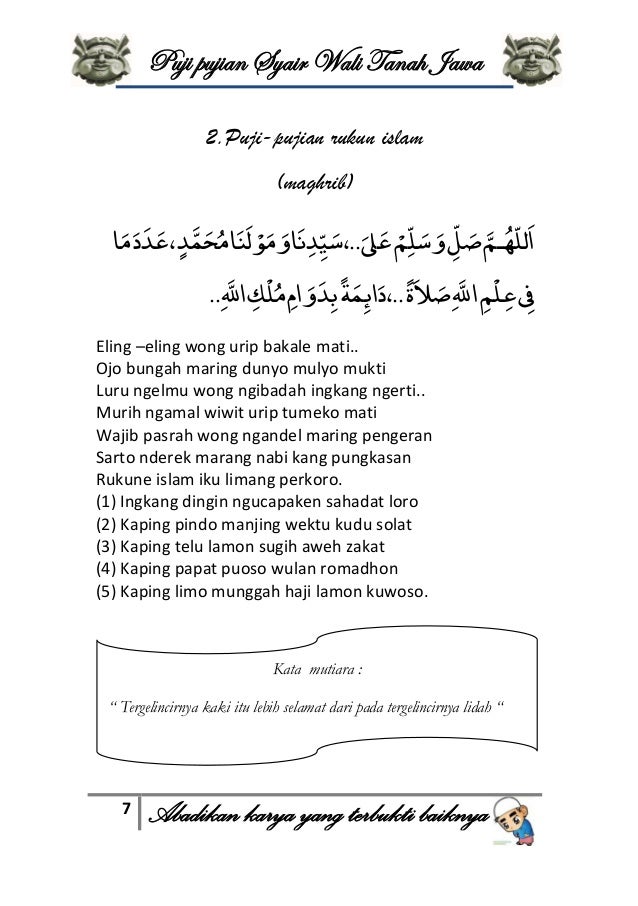 Puji pujian Syair Wali Tanah Jawa
2.Puji- pujian rukun islam
(maghrib)
اَللّٰهُـمَّ صَلِّ وَسَلِّمْ عَلَى..،سَيِّدِنَاوَمَوْلَنَامُحَمَّدٍ،عَدَدَمَا
فِى عِلْمِ اللَّهِ صَلاَةً..،دَائِمَةً بِدَوَامِ مُلْكِ اللَّهِ..
Eling –eling wong urip bakale mati..
Ojo bungah maring dunyo mulyo mukti
Luru ngelmu wong ngibadah ingkang ngerti..
Murih ngamal wiwit urip tumeko mati
Wajib pasrah wong ngandel maring pengeran
Sarto nderek marang nabi kang pungkasan
Rukune islam iku limang perkoro.
(1) Ingkang dingin ngucapaken sahadat loro
(2) Kaping pindo manjing wektu kudu solat
(3) Kaping telu lamon sugih aweh zakat
(4) Kaping papat puoso wulan romadhon
(5) Kaping limo munggah haji lamon kuwoso.
Kata mutiara :
“ Tergelincirnya kaki itu lebih selamat dari pada tergelincirnya lidah “
7 Abadikan karya yang terbukti baiknya